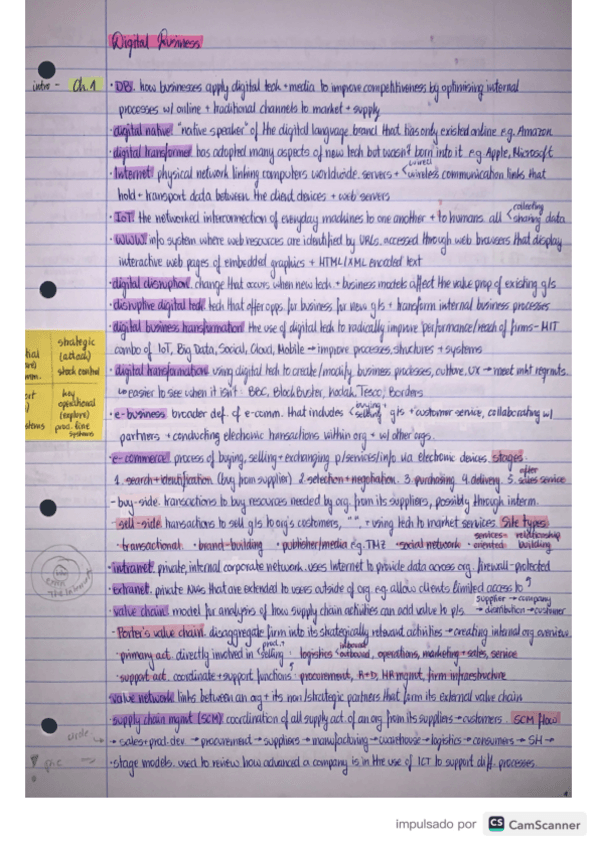 Digital Business
intro - Ch.1
· DB: how businesses apply digital tech + media to improve competitiveness by optimising internal
processes w/ online + traditional channels to market + supply
· digital native: "native speaker" of the digital language brand that has only existed online e.g. Amazon
· digital transformer: has adopted many aspects of new tech but wasn't born into it e.g. Apple, Microsoft
· Internet: physical network linking computers worldwide. servers + wired wireless communication links that
hold + transport data between the client devices + web servers
· IoT: the networked interconnection of everyday machines to one another + to humans. all collecting sharing data
· WWW: info system where web resources are identified by URLs. accessed through web browsers that display
interactive web pages of embedded graphics + HTML/XML encoded text
· digital disruption: change that occurs when new tech + business models affect the value prop of existing g/s
· disruptive digital tech: tech that offer opps for business for new g/s + transform internal business processes
· digital business transformation: the use of digital tech to radically improve performance/reach of firms - MIT
combo of IoT, Big Data, Social, Cloud, Mobile → improve processes, structures + systems
· digital transformation: using digital tech to create/modify business processes, culture, UX → meet mkt reqmnts.
↳ easier to see when it isn't: BBC, BlockBuster, Kodak, Tesco, Borders
· e-business: broader def. of e-comm. that includes buying + selling g/s + customer service, collaborating w/
partners + conducting electronic transactions within org + w/ other orgs.
· e-commerce: process of buying, selling + exchanging p/services/info via electronic devices. stages
1. search + identification (buy from supplier) 2. selection + negotiation. 3. purchasing 4. delivery. 5. after sales service
- buy-side: transactions to buy resources needed by org. from its suppliers, possibly through interm.
- sell-side: transactions to sell g/s to org's customers, " " + using tech to market services. Site types
· transactional · brand-building · publisher/media e.g. TMZ · social network · services-oriented relationship building
· intranet: private, internal corporate network. uses Internet to provide data across org. firewall-protected
· extranet: private NWs that are extended to users outside of org. eg. allow clients limited access to ↰
· value chain: model for analysis of how supply chain activities can add value to p/s. supplier → company → distribution → customer
- Porter's value chain: disaggregate firm into its strategically relevant activities → creating internal org overview.
- primary act. directly involved in prod. + selling: logistics inbound outbound, operations, marketing + sales, service
- support act. coordinate + support functions: procurement, R+D, HR mgmt, firm infrastructure
· value network: links between an org + its non/strategic partners that form its external value chain
· supply chain mgmt (SCM): coordination of all supply act. of an org from its suppliers → customers. SCM flow
circle → sales + prod. dev → procurement → suppliers → manufacturing → warehouse → logistics → consumers → SH →
· stage models: used to review how advanced a company is in the use of ICT to support diff. processes.
strategic
(attack)
stock control
key
operational
(explore)
prod. line
systems
impulsado por CS CamScanner